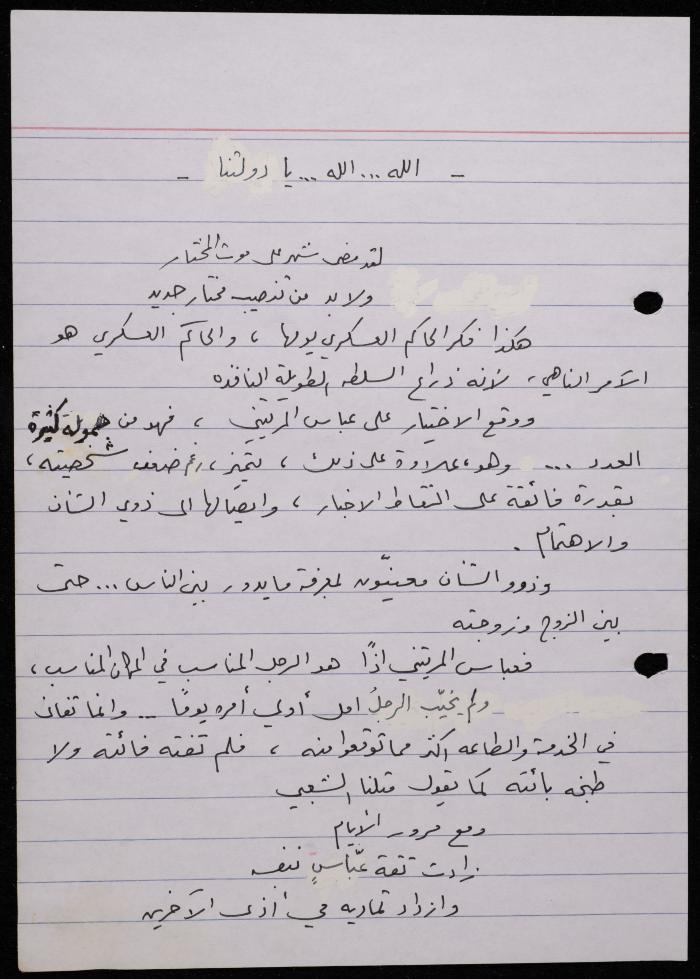 - الله... الله... يا دولتنا -
لقد مضى شهر على موت المختار
ولا بد من تنصيب مختار جديد
هكذا فكر الحاكم العسكري يومها ، والحاكم العسكري هو
الآمر الناهي، لأنه ذراع السلطه الطويلة النافذه
ووقع الاختيار على عباس المريتني ، فهو من حمولة كثيرة
العدد ... وهو، علاوة على ذلك ، يتميز، رغم ضعف شخصيته،
بقدرة فائقة على التقاط الاخبار ، وايصالها الى ذوي الشان
والاهتمام .
وذوو الشان معنيّون لمعرفة ما يدور بين الناس ... حتى
بين الزوج وزوجته
فعباس المريتني اذًا هو الرجل المناسب في المكان المناسب ،
ولم يخيّب الرجلُ امل أولي أمره يومًا .. وانما تفانى
في الخدمة والطاعه اكثر مما توقعوا منه ، فلم تفته فائته ولا
طبخه بائته كما يقول مثلنا الشعبي
ومع مرور الأيام
زادت ثقة عبّاسٍ بنفسه
وازداد تماديه في أذى الآخرين